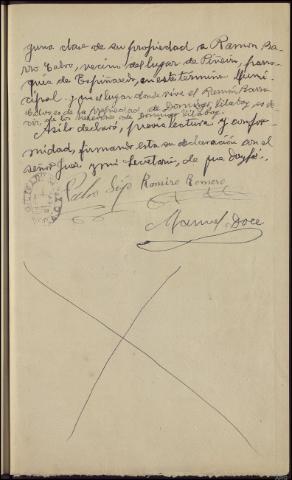 guna clase de su propiedad a Ramón Ba-
rro Calvo, vecino del lugar de Piñeiro, parro-
quia de Espiñaredo, en este término Muni-
cipal. y que el lugar donde vive el Ramón Barro
Calvo es de la propiedad de Domingo Vilaboy, es de-
cir, de los herederos de Domingo Vilaboy.
Así lo declaró, previa lectura y confor-
midad, firmando esta su declaración con el
señor Juez y mi Secretario, de que doy fé.
Pedro Ramiro Romero
Manuel Doce